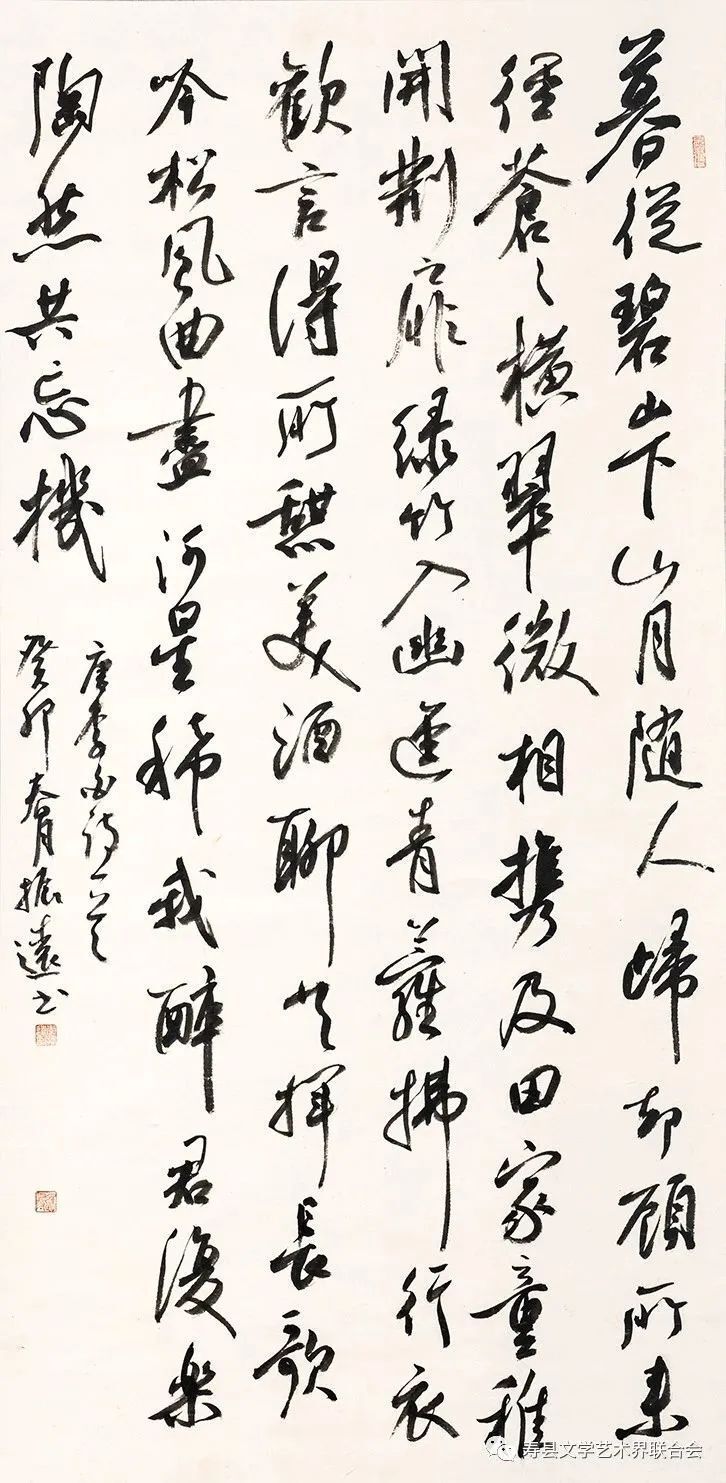 暮從碧山下山月随人歸却顧所来
徑蒼々橫翠微相携及田家童稚
開荆扉緑竹入幽逕青蘿拂行衣
歡言得所憩美酒聊共揮長歌
吟松風曲盡河星稀我醉君復樂
陶然共忘機
唐李白詩一首
癸卯春月振遠书
寿县文学艺术界联合会